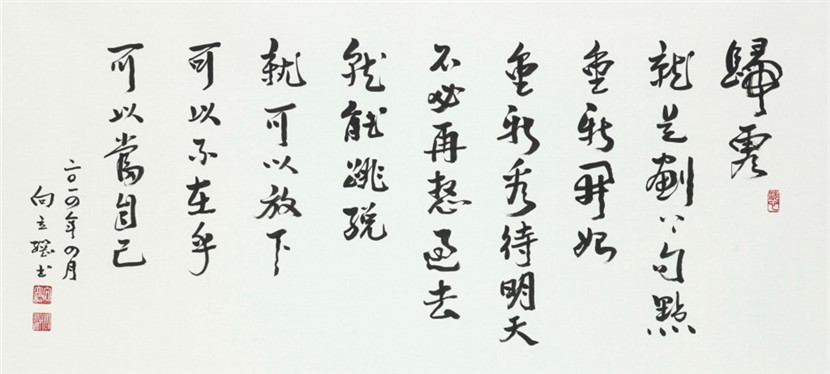 歸零
就是劃下句點
重新開始
重新看待明天
不必再過去
就能跳脫
就可以放下
可以不在乎
可以當自己
二〇一四年四月
向立綱書